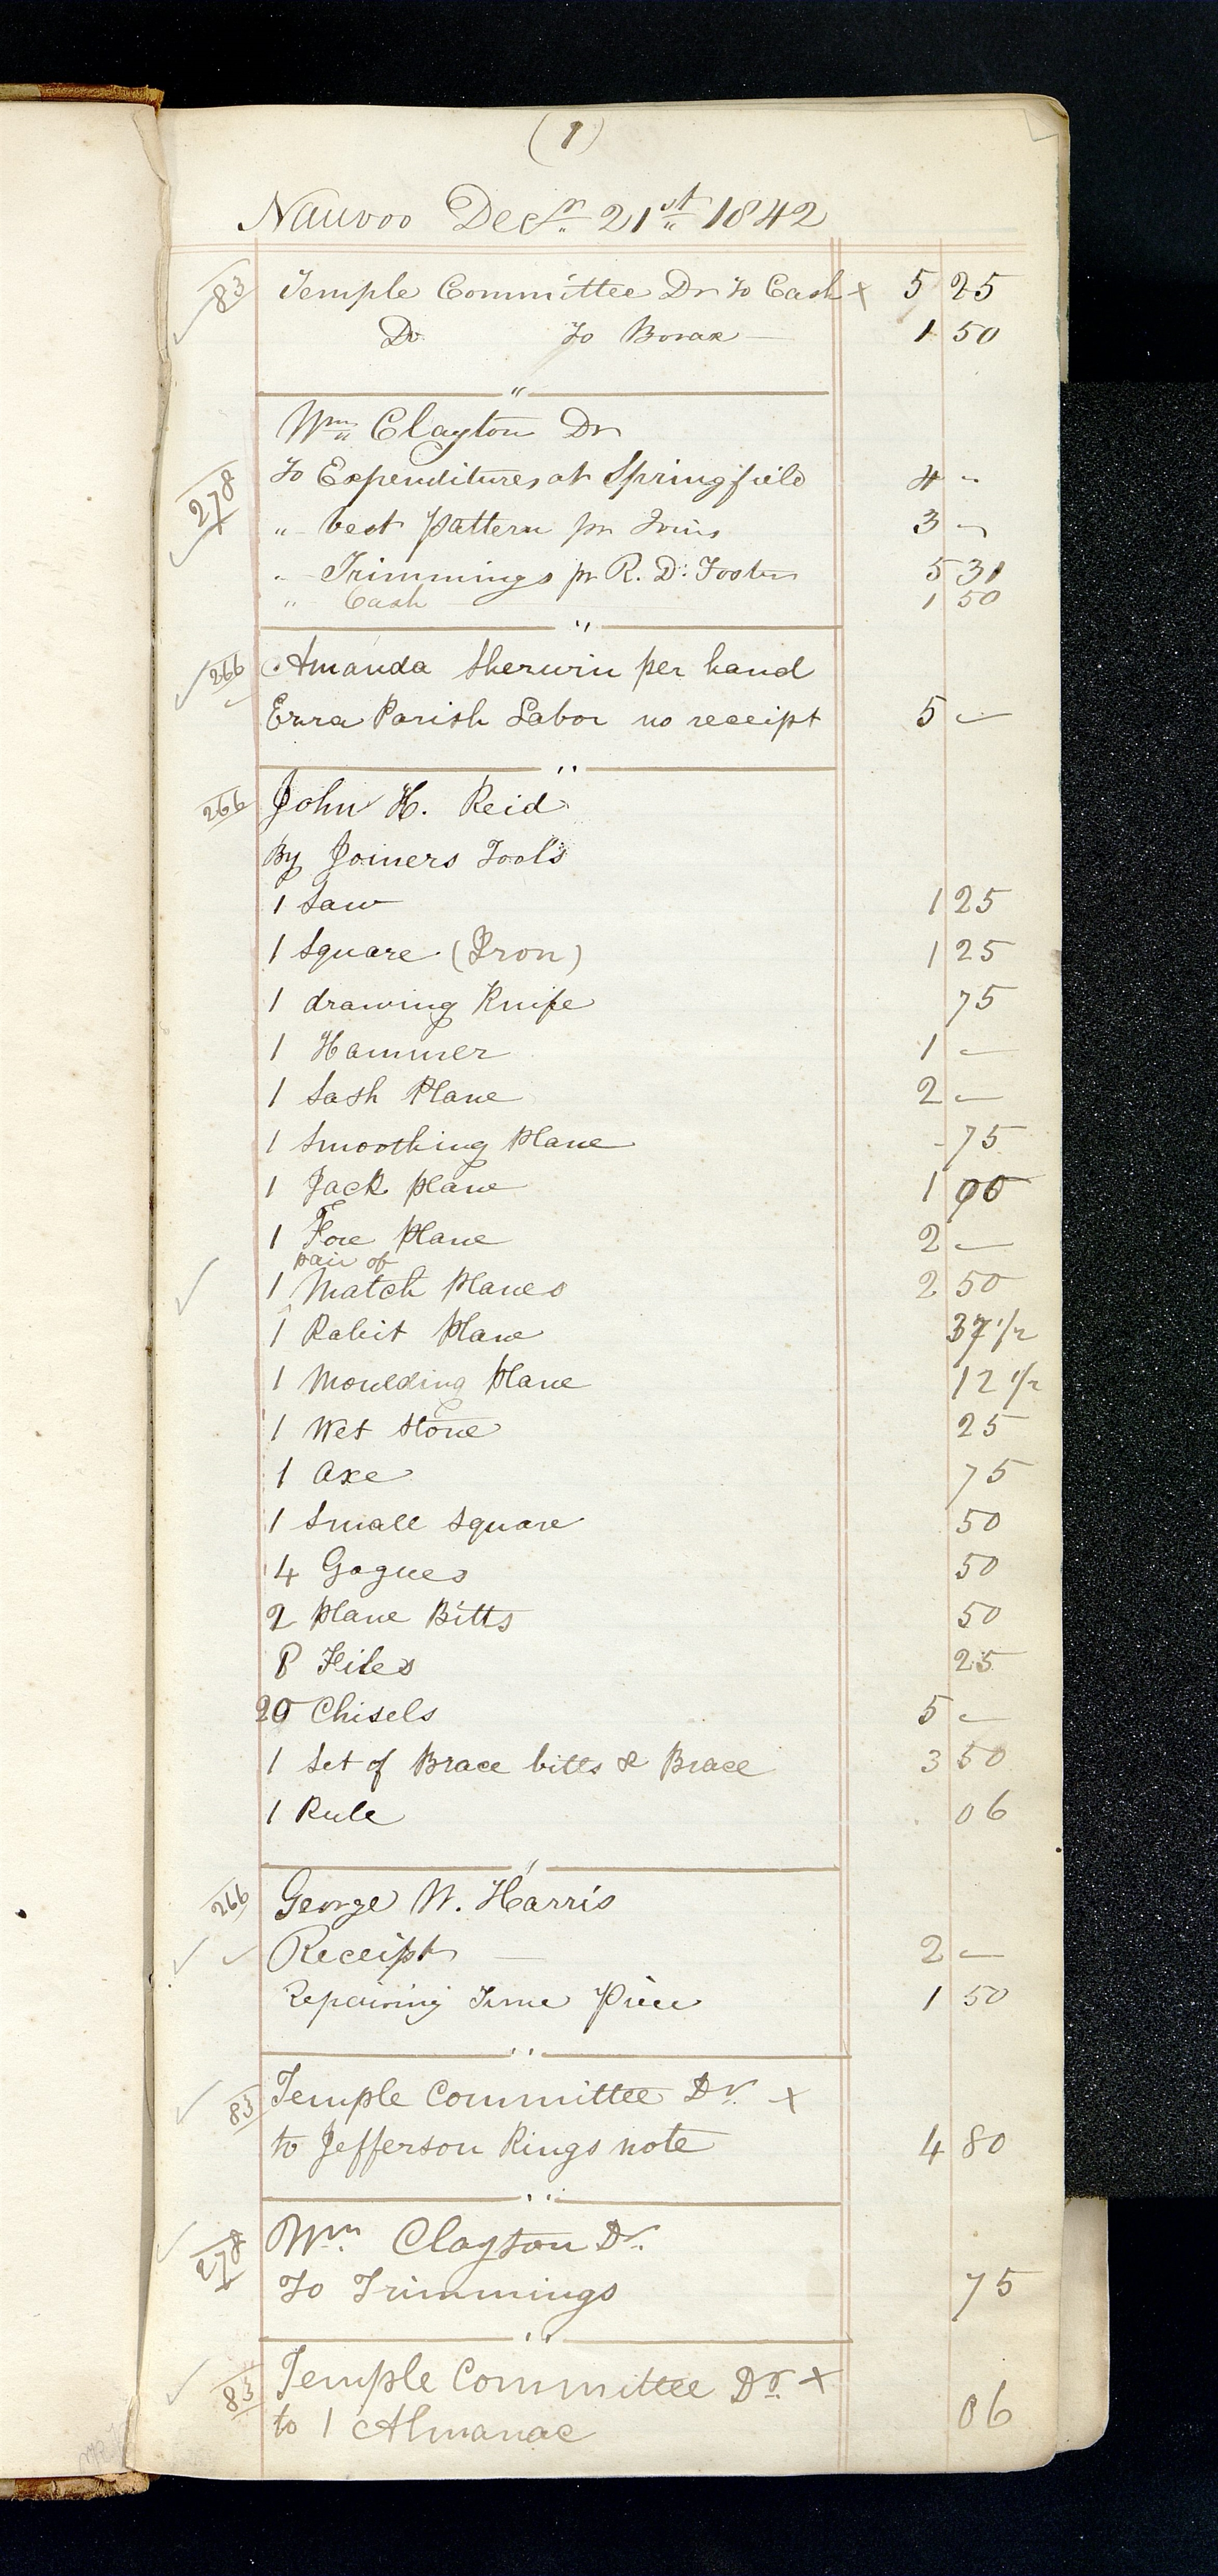 (1)
Nauvoo Decr. 21st 1842
83 Temple Committee Dr to Cash x 5 25
Do To Borax 1 50
"
Wm Clayton Dr
278 To Expenditures at Springfield 4 "
" vest Pattern pr Ivins 3 —
" Trimmings pr R. D. Foster 5 31
" Cash 1 50
"
266 Amanda Sherwin per hand
Ezra Parish Labor no receipt 5 —
"
266 John H. Reid
By Joiners Tools
1 Saw 1 25
1 Square (Iron) 1 25
1 drawing Knife 75
1 Hammer 1 —
1 Sash Plane 2 —
1 Smoothing Plane - 75
1 Jack plane 1 00
1 Fore Plane 2 —
pair of
1 ^ Match Planes 2 50
1 Rabit Plane 37 1/2
1 Moulding plane 12 1/2
1 Wet Stone 25
1 Axe 75
1 Small Square 50
4 Gogues 50
2 Plane Bitts 50
8 Files 25
20 Chisels 5 —
1 Set of Brace bitts & Brace 3 50
1 Rule 06
"
266 George W. Harris
Receipt — 2 —
Repairing Time Piece 1 50
"
83 Temple Committee Dr. x
to Jefferson Kings note 4 80
"
278 Wm. Clayton Dr.
To Trimmings 75
"
83 Temple Committee Dr. x
to 1 Almanac 06